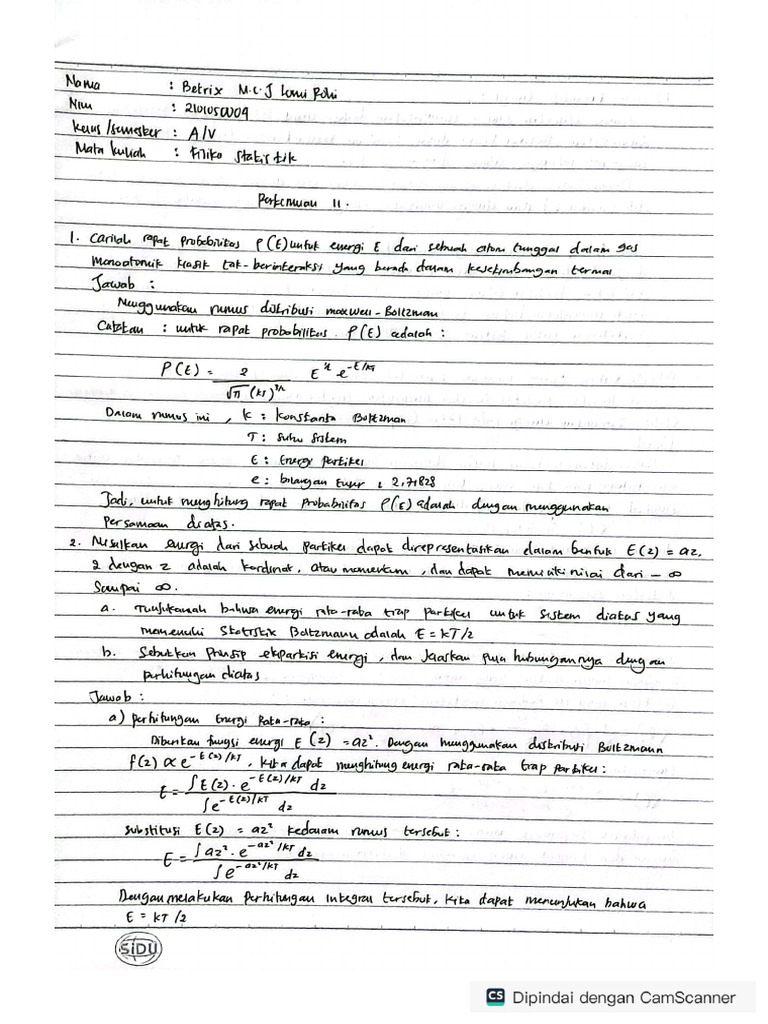 Nama : Betrix M.C.J Lomi Rohi
Nim : 2101050009
Kelas/semester : A/V
Mata kuliah : Fisika Statistik
Pertemuan 11.
1. Carilah rapat probabilitas P(E) untuk energi E dari sebuah atom tunggal dalam gas
Monoatomik klasik tak-berinteraksi yang berada dalam kesetimbangan termal
Jawab :
Menggunakan rumus distribusi maxwell-Boltzman
Catatan : untuk rapat probabilitas P(E) adalah :
P(E) = 2 / √π (kT)^3/2 E^½ e^-E/kT
Dalam rumus ini, k : konstanta Boltzman
T : suhu sistem
E : Energi partikel
e : bilangan Euler ± 2,71828
Jadi, untuk menghitung rapat probabilitas P(E) adalah dengan menggunakan
Persamaan diatas.
2. Misalkan energi dari sebuah partikel dapat direpresentasikan dalam bentuk E(z) = az,
2 dengan z adalah kordinat, atau momentum, dan dapat memiliki nilai dari - ∞
Sampai ∞.
a. Tunjukkanlah bahwa energi rata-rata tiap partikel untuk sistem diatas yang
memenuhi Statistik Boltzmann adalah E = kT/2
b. Sebutkan Prinsip ekipartisi energi, dan jelaskan pula hubungannya dengan
perhitungan diatas
Jawab :
a) perhitungan Energi Rata-rata :
Diberikan fungsi energi E(z) = az². Dengan menggunakan distribusi Boltzmann
f(z) ∝ e^-E(z)/kT, kita dapat menghitung energi rata-rata tiap partikel :
E = ∫E(z) . e^-E(z)/kT dz / ∫e^-E(z)/kT dz
Substitusi E(z) = az² kedalam rumus tersebut :
E = ∫az² . e^-az²/kT dz / ∫e^-az²/kT dz
Dengan melakukan perhitungan integral tersebut, kita dapat menunjukan bahwa
E = kT/2
SiDU
CS Dipindai dengan CamScanner